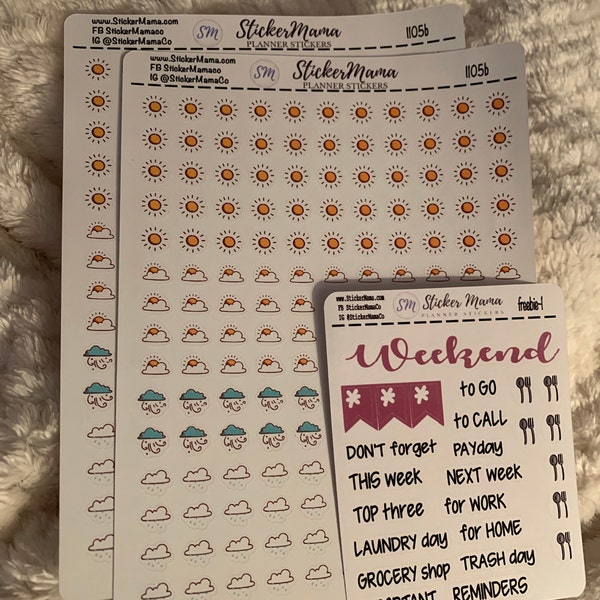 www.StickerMama.com
FB StickerMamaco
IG @StickerMamaCo
SM
StickerMama
PLANNER STICKERS
1105b
www.StickerMama.com
FB StickerMamaco
IG @StickerMamaCo
SM
StickerMama
PLANNER STICKERS
1105b
www.StickerMama.com
FB StickerMamaCo
IG @StickerMamaCo
SM
Sticker Mama
PLANNER STICKERS
freebie-1
Weekend
to GO
to CALL
DON'T forget PAYday
THIS week NEXT week
TOP three for WORK
LAUNDRY day for HOME
GROCERY shop TRASH day
REMINDERS